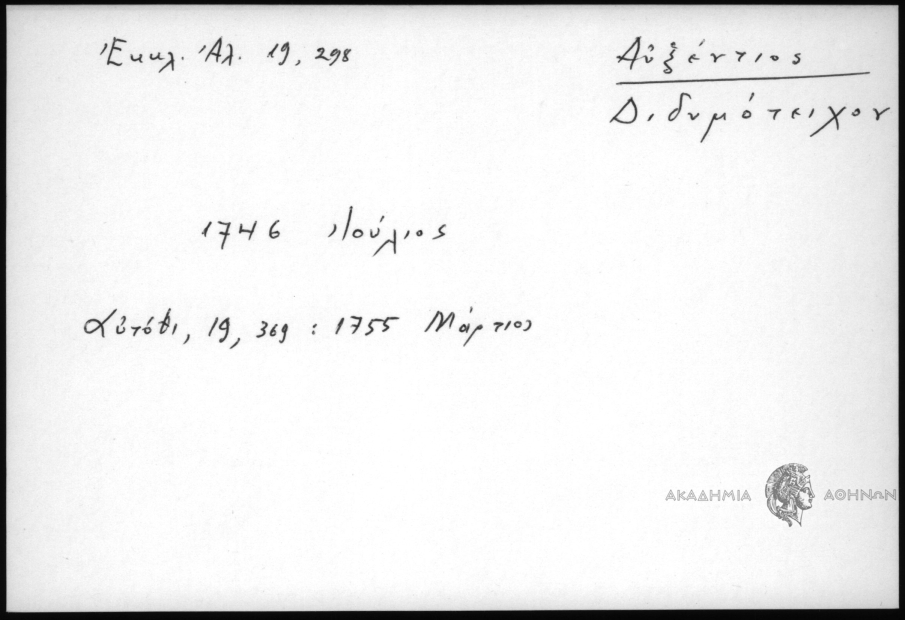 Ἐκκλ. Ἀλ. 19, 298
Αὐξέντιος
Διδυμότειχον
1746 Ἰούλιος
Αὐτόθι, 19, 369 : 1755 Μάρτιος
ΑΚΑΔΗΜΙΑ ΑΘΗΝΩΝ